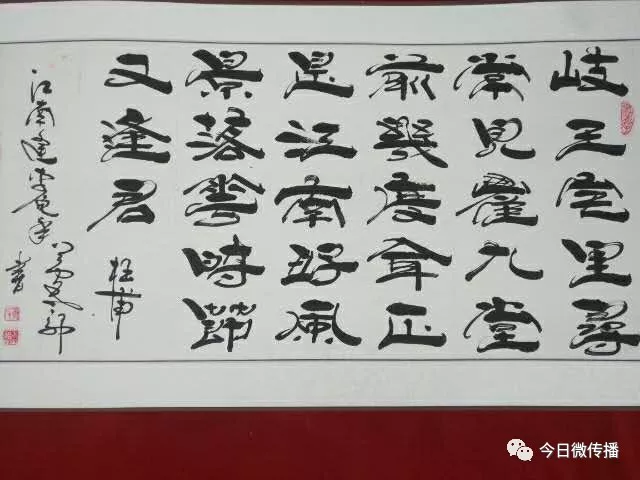 岐王宅里尋
常見崔九堂
前幾度聞正
是江南好風
景落花時節
又逢君
杜甫
江南逢李龟年
書
今日微传播